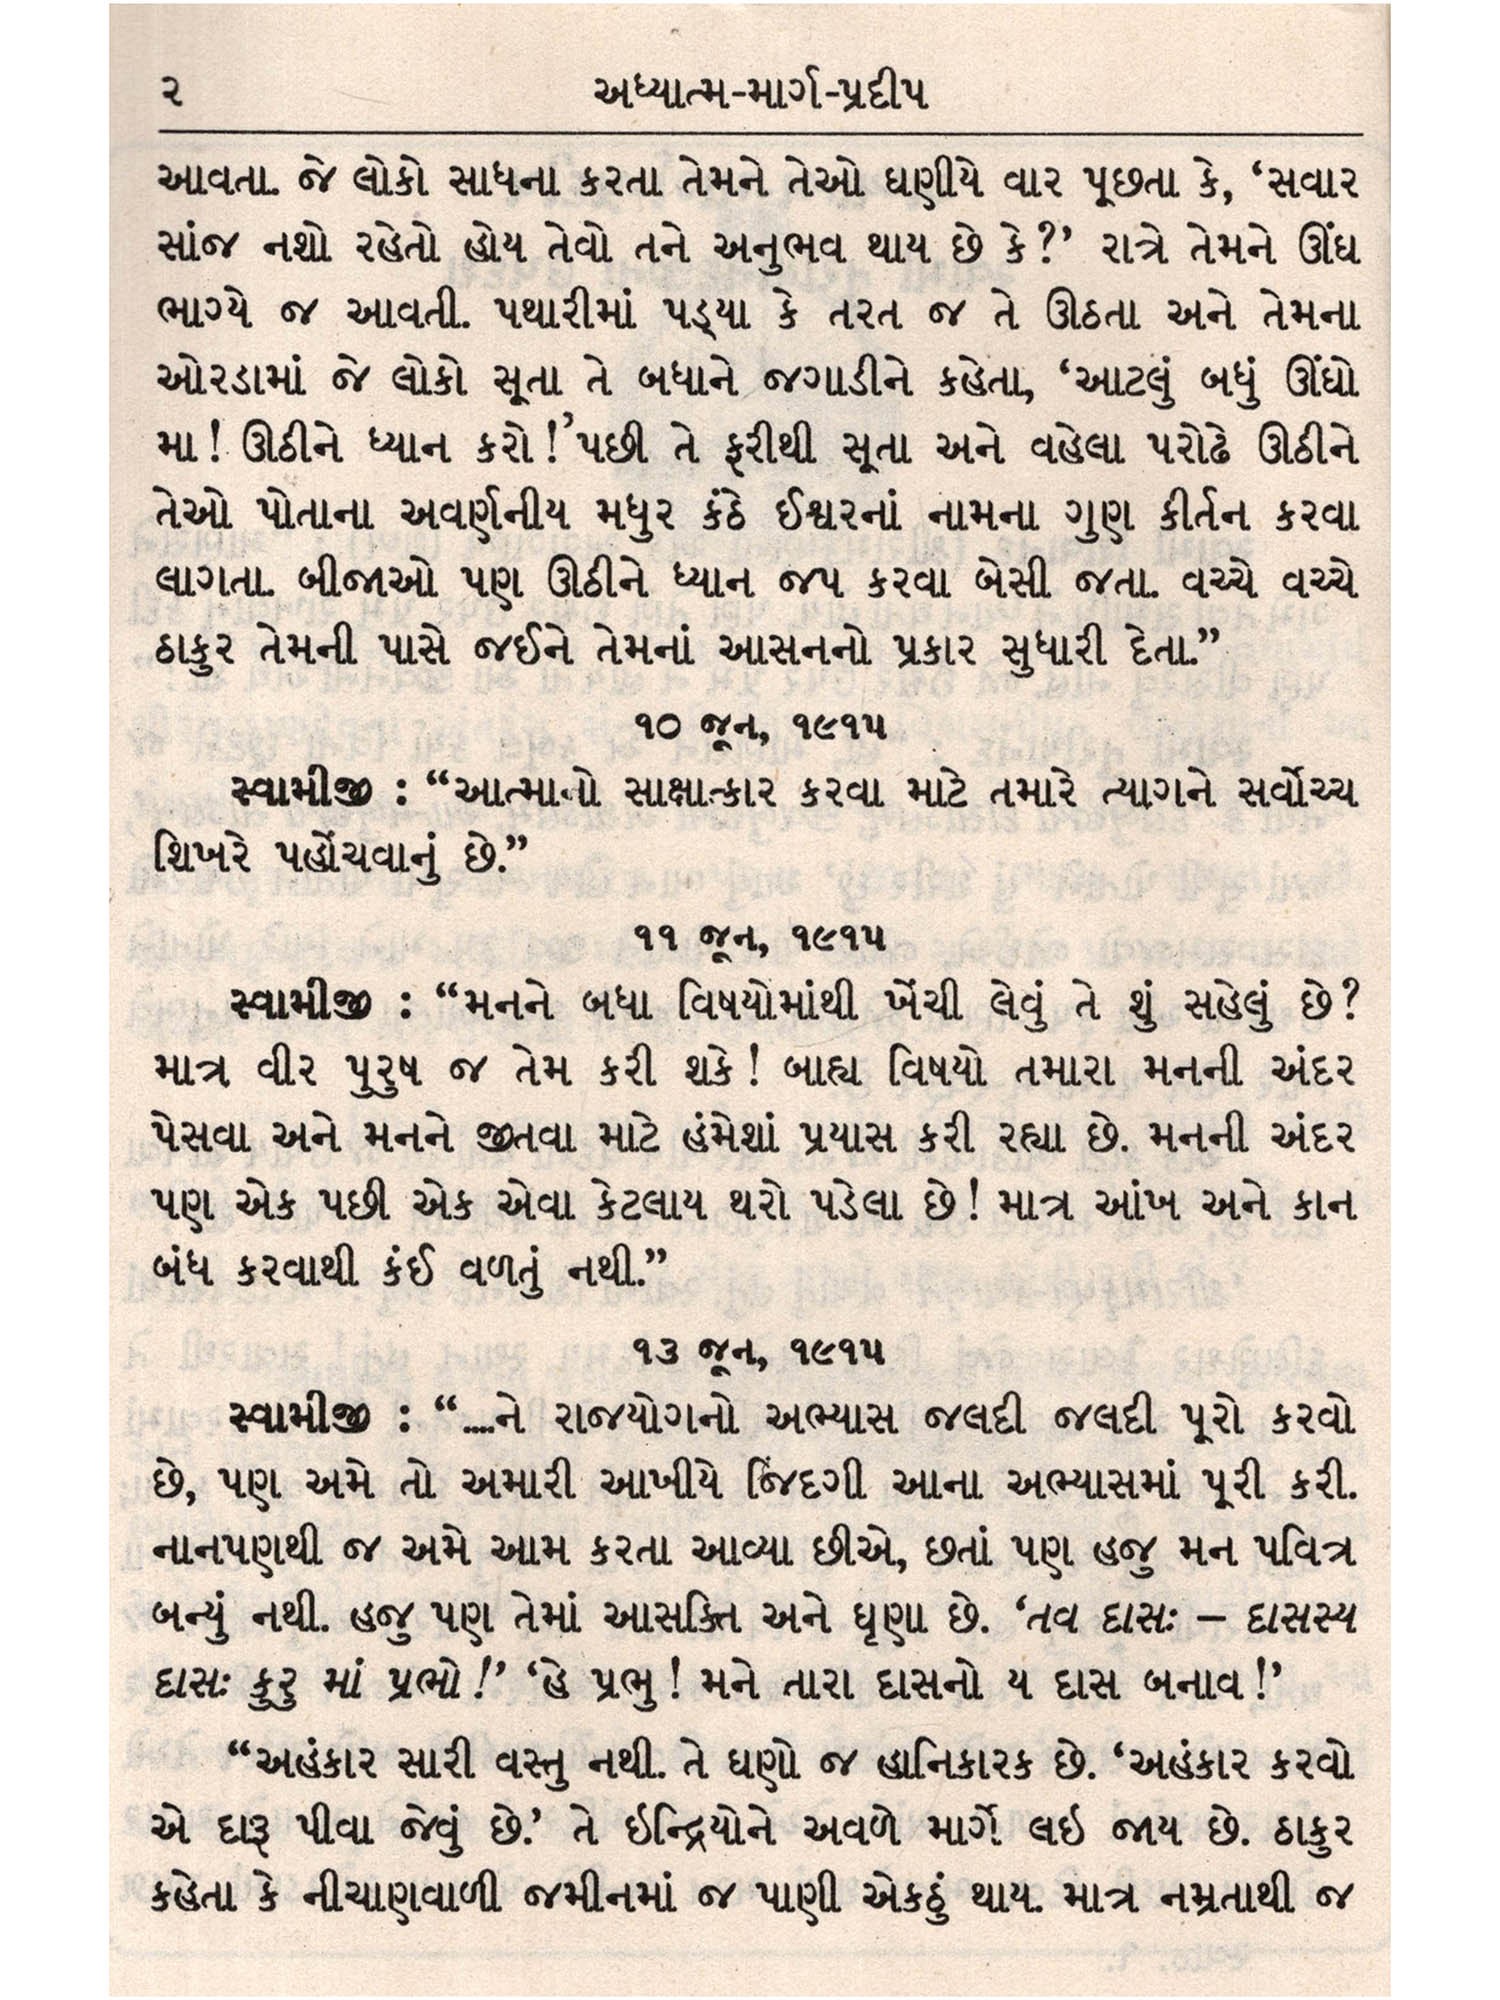 ૨
અધ્યાત્મ-માર્ગ-પ્રદીપ
આવતા. જે લોકો સાધના કરતા તેમને તેઓ ઘણીયે વાર પૂછતા કે, ‘સવાર
સાંજ નશો રહેતો હોય તેવો તને અનુભવ થાય છે કે?’ રાત્રે તેમને ઊંઘ
ભાગ્યે જ આવતી. પથારીમાં પડ્યા કે તરત જ તે ઊઠતા અને તેમના
ઓરડામાં જે લોકો સૂતા તે બધાને જગાડીને કહેતા, ‘આટલું બધું ઊંઘો
મા! ઊઠીને ધ્યાન કરો!’ પછી તે ફરીથી સૂતા અને વહેલા પરોઢે ઊઠીને
તેઓ પોતાના અવર્ણનીય મધુર કંઠે ઈશ્વરનાં નામના ગુણ કીર્તન કરવા
લાગતા. બીજાઓ પણ ઊઠીને ધ્યાન જપ કરવા બેસી જતા. વચ્ચે વચ્ચે
ઠાકુર તેમની પાસે જઈને તેમનાં આસનનો પ્રકાર સુધારી દેતા.”
૧૦ જૂન, ૧૯૧૫
સ્વામીજી : “આત્માનો સાક્ષાત્કાર કરવા માટે તમારે ત્યાગને સર્વોચ્ચ
શિખરે પહોંચવાનું છે.”
૧૧ જૂન, ૧૯૧૫
સ્વામીજી : “મનને બધા વિષયોમાંથી ખેંચી લેવું તે શું સહેલું છે?
માત્ર વીર પુરુષ જ તેમ કરી શકે! બાહ્ય વિષયો તમારા મનની અંદર
પેસવા અને મનને જીતવા માટે હંમેશાં પ્રયાસ કરી રહ્યા છે. મનની અંદર
પણ એક પછી એક એવા કેટલાય થરો પડેલા છે! માત્ર આંખ અને કાન
બંધ કરવાથી કંઈ વળતું નથી.”
૧૩ જૂન, ૧૯૧૫
સ્વામીજી : “....ને રાજયોગનો અભ્યાસ જલદી જલદી પૂરો કરવો
છે, પણ અમે તો અમારી આખીયે જિંદગી આના અભ્યાસમાં પૂરી કરી.
નાનપણથી જ અમે આમ કરતા આવ્યા છીએ, છતાં પણ હજુ મન પવિત્ર
બન્યું નથી. હજુ પણ તેમાં આસક્તિ અને ઘૃણા છે. ‘તવ દાસઃ – દાસસ્ય
દાસઃ કુરુ માં પ્રભો!’ ‘હે પ્રભુ! મને તારા દાસનો ય દાસ બનાવ!’
“અહંકાર સારી વસ્તુ નથી. તે ઘણો જ હાનિકારક છે. ‘અહંકાર કરવો
એ દારૂ પીવા જેવું છે.’ તે ઇન્દ્રિયોને અવળે માર્ગે લઇ જાય છે. ઠાકુર
કહેતા કે નીચાણવાળી જમીનમાં જ પાણી એકઠું થાય. માત્ર નમ્રતાથી જ